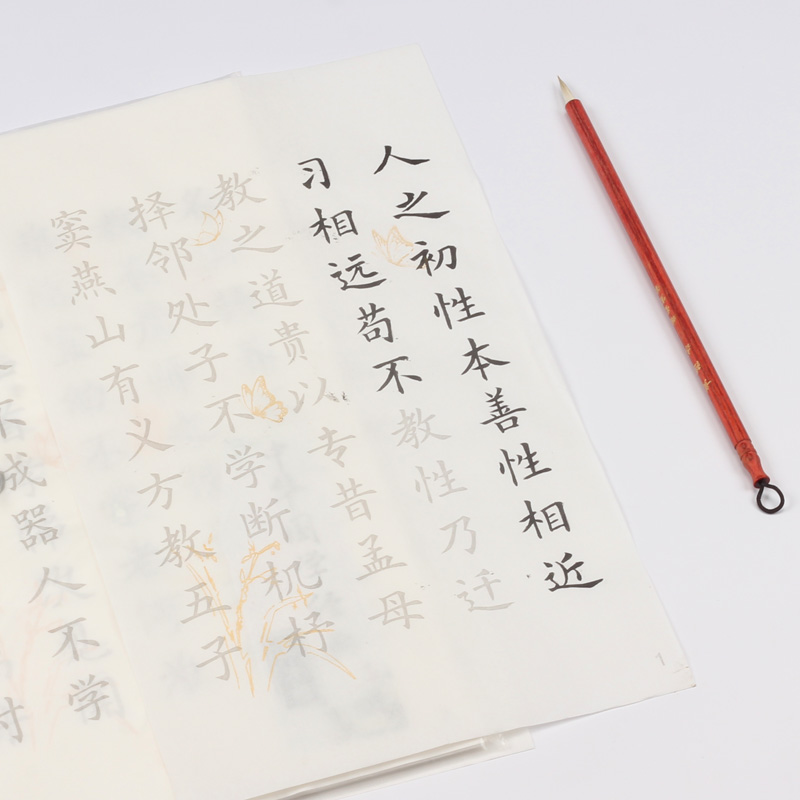 人之初性本善性相近
习相远苟不教性乃迁
教之道贵以专昔孟母
择邻处子不学断机杼
窦燕山有义方教五子
不成器人不学
1